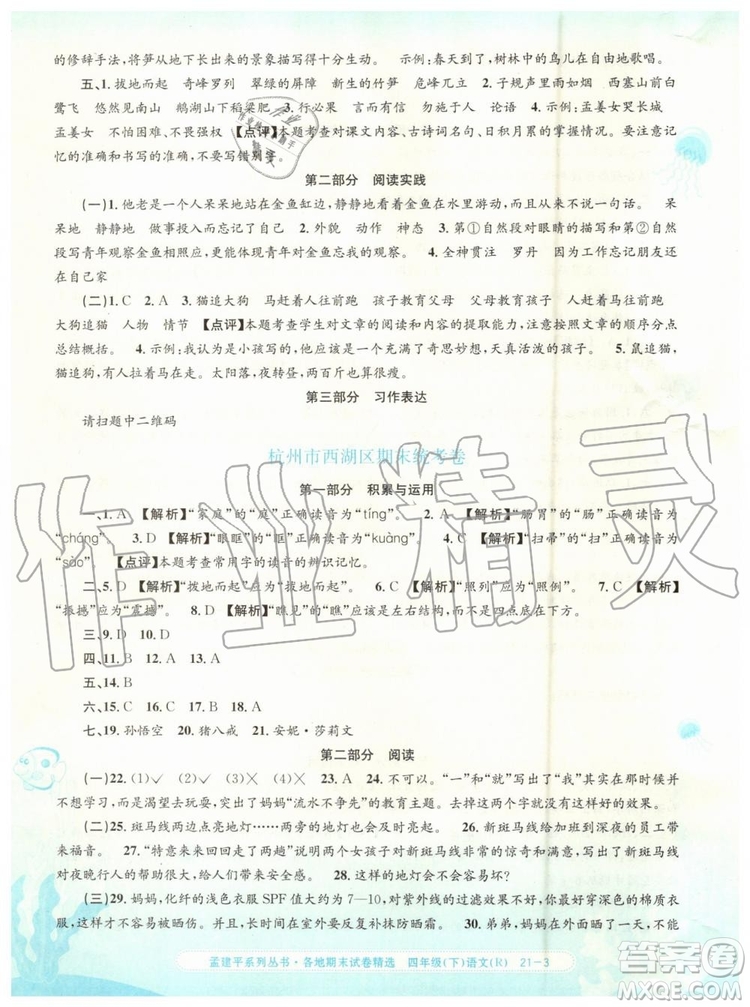 的修辞手法，将笋从地下长出来的景象描写得十分生动。　示例：春天到了，树林中的鸟儿在自由地歌唱。
五、1. 拔地而起　奇峰罗列　翠绿的屏障　新生的竹笋　危峰兀立　2. 子规声里雨如烟　西塞山前白
鹭飞　悠然见南山　鹅湖山下稻粱肥　3. 行必果　言而有信　与人　论语　4. 示例：孟姜女哭长城
孟姜女　不怕困难、不畏强权　【点评】本题考查对课文内容、古诗词名句、日积月累的掌握情况。要注意
记忆的准确，不要写错别字。
第二部分　阅读实践
(一)1. 他老是一个人呆呆地站在金鱼缸边，静静地看着金鱼在水里游动，而且从来不说一句话。　呆
呆地　静静地　做事投入而忘记了自己　2. 外貌　动作　神态　3. 第①自然段对眼睛的描写和第②自然
段写青年观察金鱼相照应，突出青年忘我的观察。　4. 全神贯注　罗丹　因为工作忘记了朋友还
在自己家
(二)1. C　2. A　3. 猫追大狗　马赶着人往前跑　孩子教育父母　父母教育孩子　人赶着马往前跑
大狗追猫　人物　情节　【点评】本题考查学生对文章的阅读和内容的提取能力，注意按照文章的顺序分点
总结概括。　4. 示例：我认为是小孩写的，他应该是一个充满了奇思妙想，天真活泼的孩子。　5. 鼠追猫。
猫追大狗。人赶着马往前跑。太阳落，夜转昼，两百斤也只能算很瘦。
第三部分　习作表达
请扫题中二维码
杭州市西湖区期末统考卷
第一部分　积累与运用
一、1. A　【解析】“家庭”的“庭”正确读音为“tíng”。　2. A　【解析】“肠胃”的“肠”正确读音为
“cháng”。　3. D　【解析】“眼眶”的“眶”正确读音为“kuàng”。　4. C　【解析】“扫帚”的“扫”正确读音为
“sào”　【点评】本题考查常用字的读音的辨识记忆。
二、5. D　【解析】“拨地而起”应为“拔地而起”。　6. C　【解析】“照列”应为“照例”。　7. C　【解析】
“振撼”应为“震撼”。　8. D　【解析】“瞧见”的“瞧”应该是左右结构，而不是四点底在下方。
三、9. D　10. D
四、11. B　12. A　13. A
五、14. B
六、15. C　16. C　17. C　18. A
七、19. 孙悟空　20. 猪八戒　21. 安妮·莎莉文
第二部分　阅读
(一)22. (1)√　(2)√　(3)×　(4)×　23. A　24. 不可以。“一”和“就”写出了“我”其实并不是
不想学习，而是渴望去阳台放松，突出了妈妈“流水不争先”的教育主题。去掉就没有这样好的效果了。
(二)25. 斑马线两边点亮地灯……两旁的地灯付之一笑。　26. 新斑马线给加班到深夜的员工带
来福音。　27. “特意来来回回走了两趟”表现了两个女孩子对新斑马线的惊奇和满意。　28. 新斑马线
对夜晚行人的帮助很大，给人们带来安全感。　这样的地灯会不会容易坏？
(三)29. 妈妈，化纤的浅色衣服 SPF 值大约为 7—10，对紫外线的过滤效果不好，你最好穿深色的棉质衣
服，大檐帽可以保护你的颈部不被晒伤。长时间在室外要反复补抹防晒霜。　30. 弟弟，妈妈皮肤发炎，不能
孟建平系列丛书·各地期末试卷精选　四年级(下)语文(R)　21－3
作业精灵
答案圈
MXQE.COM